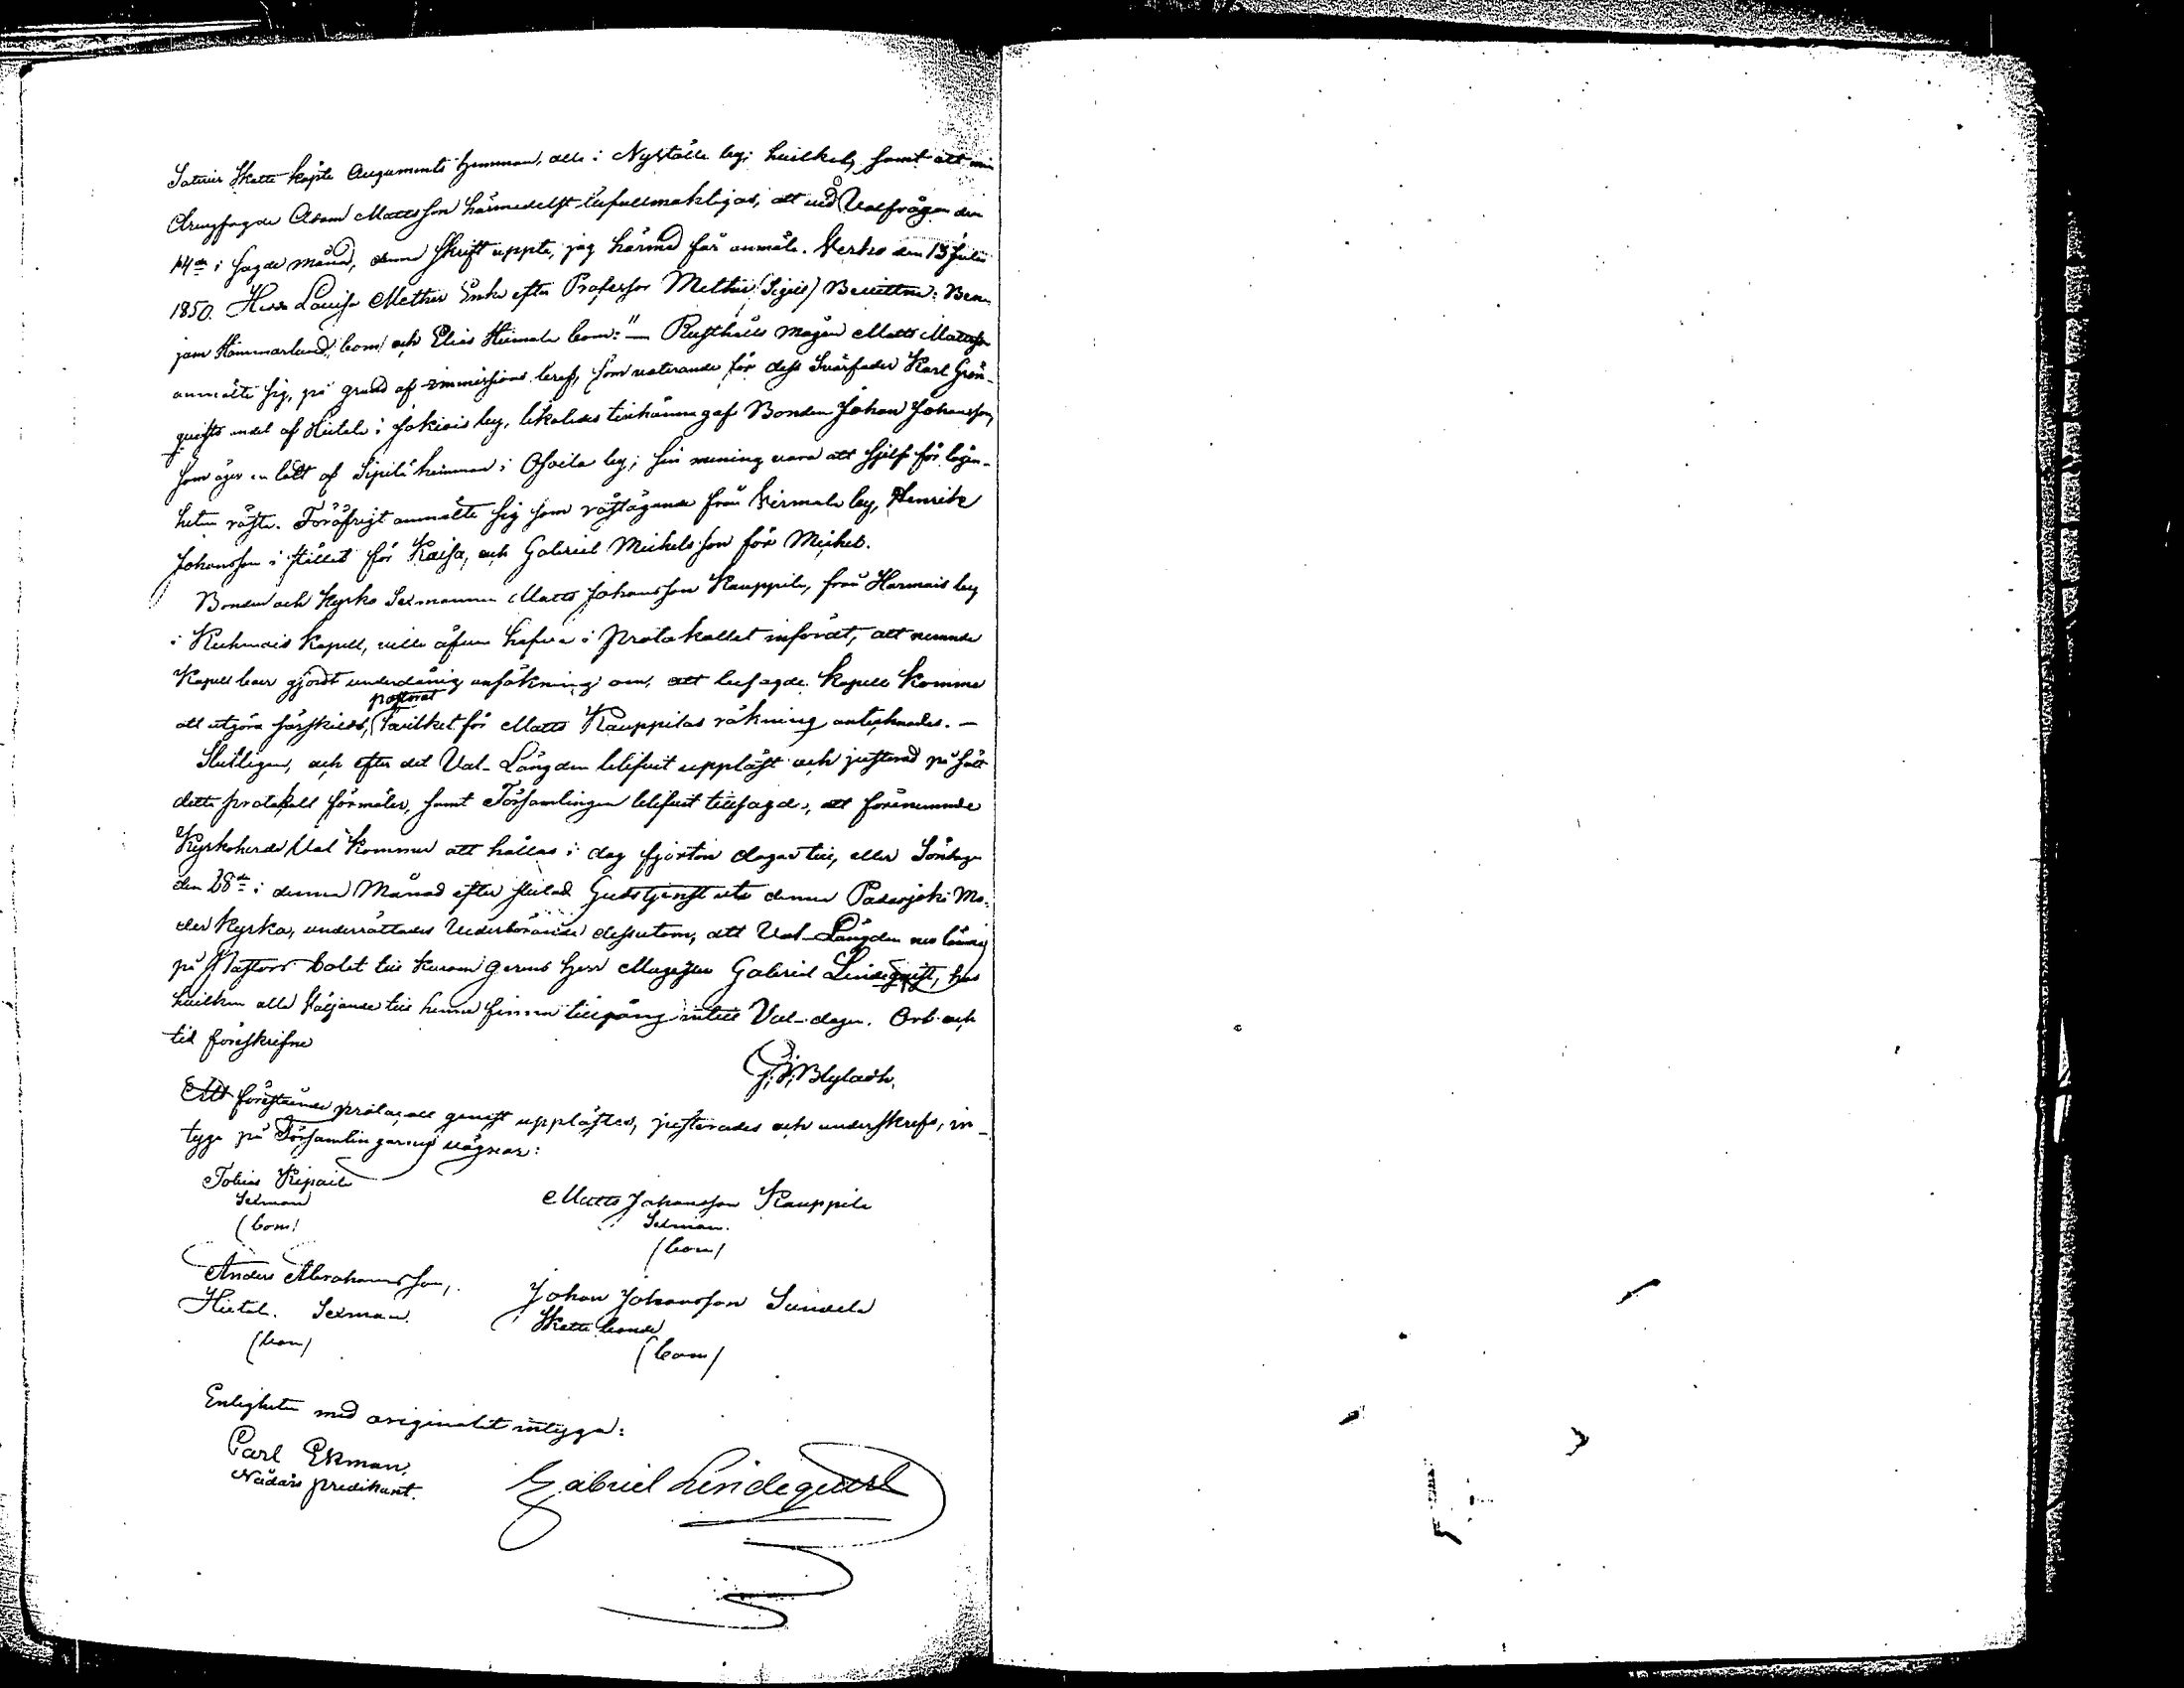 Skatte köpte Auguments hemman, alla i Nystölä by; hvilket, samt att min
Arrongfagde Adam Mattsson härmedelst befullmäktigas, att vid Valfrågan den
14de i sagde månad, denna skrift uppte, jag härmed får anmäla. Verho den 13 Julii
1850. Hedv. Lovisa Methér Enka efter Professor Methér (Sigill) Bevittna: Ben-
jam Hammarlund, bom: och Elias Heimala bom:" — Rusthålls mågen Matts Mattsson
anmälte sig, på grund af immissions bref, som voterande för dess Svärfader Karl Grön-
qvists andel af Hietala i Jokiois by, likaledes tillkännagaf Bonden Johan Johansson,
som äger en lått af Sipilä hemman i Osoila by, sin mening vara att sjelf för lägen-
heten rösta. Föröfrigt anmälte sig som röstägande från Virmala by, Henrik
Johansson i stället för Kaisa, och Gabriel Michelsson för Michel.
Bonden och Kyrko Sexmannen Matts Johansson Kauppila, från Harmois by
i Kuhmois Kapell, ville äfven hafva i Protokollet infördt, att nemnde
Kapell har gjordt underdånig ansökning om, att besagde Kapell komme
att utgöra särskildt, pastorat hvilket för Matts Kauppilas räkning antecknades. —
Slutligen, och efter det Val-Längden blifvit uppläst och justerad på sätt
detta protokoll förmäler, samt Församlingen blifvit tillsagde, att förenemnde
Kyrkoherde Val kommer att hållas i dag fjorton dagar till, eller Söndagen
den 28de i denna Månad efter slutad Gudstjenst uti denna Padasjoki Mo-
der Kyrka, underrättades Vederbörande dessutom, att Val-Längden nu lämnas
på Pastors bolet till Kuram gerens Herr Magister Gabriel Lindeqvist, hos
hvilken alla ägande till henne finna tillgång intill Val-dagen. Ort och
tid föreskrifne
Blyladh.
Att förestående protocoll genast upplästes, justerades och underskrefs, in-
tyga på Församlingarnes vägnar:
Tobias
Sexman
(bom)
Matts Johansson Kauppila
Sexman.
(bom)
Anders Abrahamsson,
Hietal. Sexman.
(bom)
Johan Johansson
Skatte bonde
(bom)
Enligheten med originalet intyga:
Carl Ekman,
Nådårs predikant.
Gabriel Lindeqvist